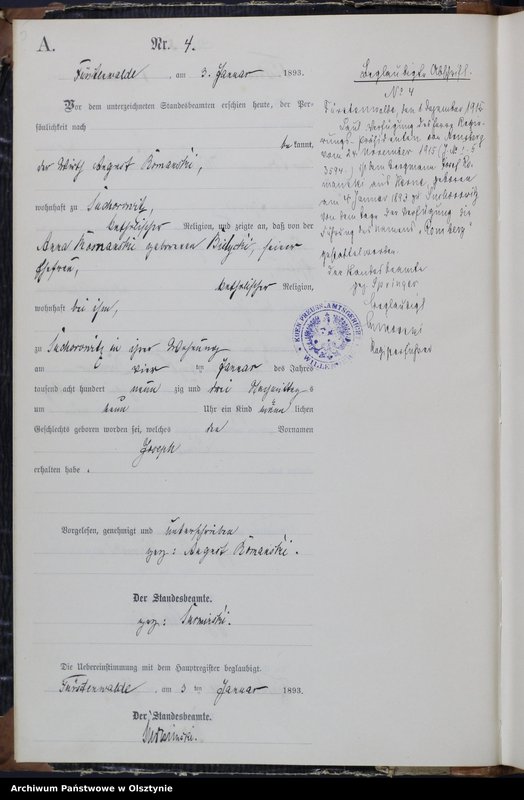 A.
Nr. 4.
Fürstenwalde, am 3. Januar 1893.
Vor dem unterzeichneten Standesbeamten erschien heute, der Per-
sönlichkeit nach
be kannt,
der Wirth August Romanski,
wohnhaft zu
katholischer Religion, und zeigte an, daß von der
Anna Romanski geborenen seiner
Ehefrau,
katholischer Religion,
wohnhaft bei ihm,
zu in ihrer Wohnung
am vier ten Januar des Jahres
tausend acht hundert neun zig und drei Nachmittag s
um neun Uhr ein Kind männ lichen
Geschlechts geboren worden sei, welches den Vornamen
Joseph
erhalten habe .
Vorgelesen, genehmigt und unterschrieben
gez: August Romanski.
Der Standesbeamte.
gez:
Die Uebereinstimmung mit dem Hauptregister beglaubigt.
Fürstenwalde, am 3 ten Januar 1893.
Der Standesbeamte.
Beglaubigte Abschrift.
No 4
Fürstenwalde, den Dezember 1915
Laut Verfügung des Regie-
rungs-Präsidenten von Arnsberg
vom 24. November 1915
ist dem Bergmann Josef Ro-
manski aus Herne, geboren
am 4. Januar 1893 zu
von dem Tage der Verfügung die
Führung des Namens "Romberg"
gestattet worden.
Der Standesbeamte
gez Springer
Beglaubigt
KOEN. PREUSS. AMTSGERICHT
Archiwum Państwowe w Olsztynie